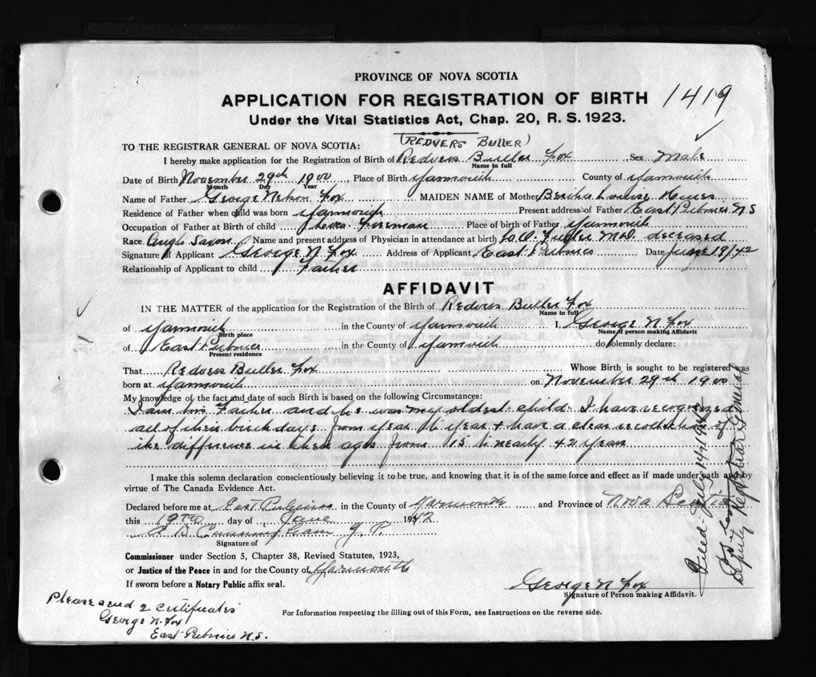 PROVINCE OF NOVA SCOTIA
APPLICATION FOR REGISTRATION OF BIRTH 1419
Under the Vital Statistics Act, Chap. 20, R. S. 1923.
(REDVERS BULLER)
TO THE REGISTRAR GENERAL OF NOVA SCOTIA:
I hereby make application for the Registration of Birth of Redvers Buller Fox Sex Male
Name in full
Date of Birth November 29th 1900 Place of Birth Yarmouth County of Yarmouth
Month Day Year
Name of Father George Nelson Fox MAIDEN NAME of Mother Bertha Louise
Residence of Father when child was born Yarmouth Present address of Father East Pubnico N S
Occupation of Father at Birth of child Foreman Place of birth of Father Yarmouth
Race Anglo Saxon Name and present address of Physician in attendance at birth Fuller M.D. deceased
Signature of Applicant George N Fox Address of Applicant East Pubnico Date June 19/42
Relationship of Applicant to child Father
AFFIDAVIT
IN THE MATTER of the application for the Registration of the Birth of Redvers Buller Fox
Name in full
of Yarmouth in the County of Yarmouth I, George N. Fox
Birth place Name of person making Affidavit
of East Pubnico in the County of Yarmouth do solemnly declare:
Present residence
That Redvers Buller Fox Whose Birth is sought to be registered was
born at Yarmouth on November 29th 1900
My knowledge of the fact and date of such Birth is based on the following Circumstances:
I am his Father and he was my oldest child. I have recognized
all of their birthdays from year to year & have a clear recollection of
the difference in their ages from 15 to nearly 42 years
I make this solemn declaration conscientiously believing it to be true, and knowing that it is of the same force and effect as if made under oath and by
virtue of The Canada Evidence Act.
Declared before me at East Pubnico in the County of Yarmouth and Province of Nova Scotia
this 19th day of June 1942
Cunningham J. P.
Signature of
Commissioner under Section 5, Chapter 38, Revised Statutes, 1923,
or Justice of the Peace in and for the County of Yarmouth
If sworn before a Notary Public affix seal.
George N. Fox
Signature of Person making Affidavit.
For Information respecting the filling out of this Form, see Instructions on the reverse side.
Please send 2 certificates
George N. Fox
East Pubnico N.S.
Deputy Registrar General